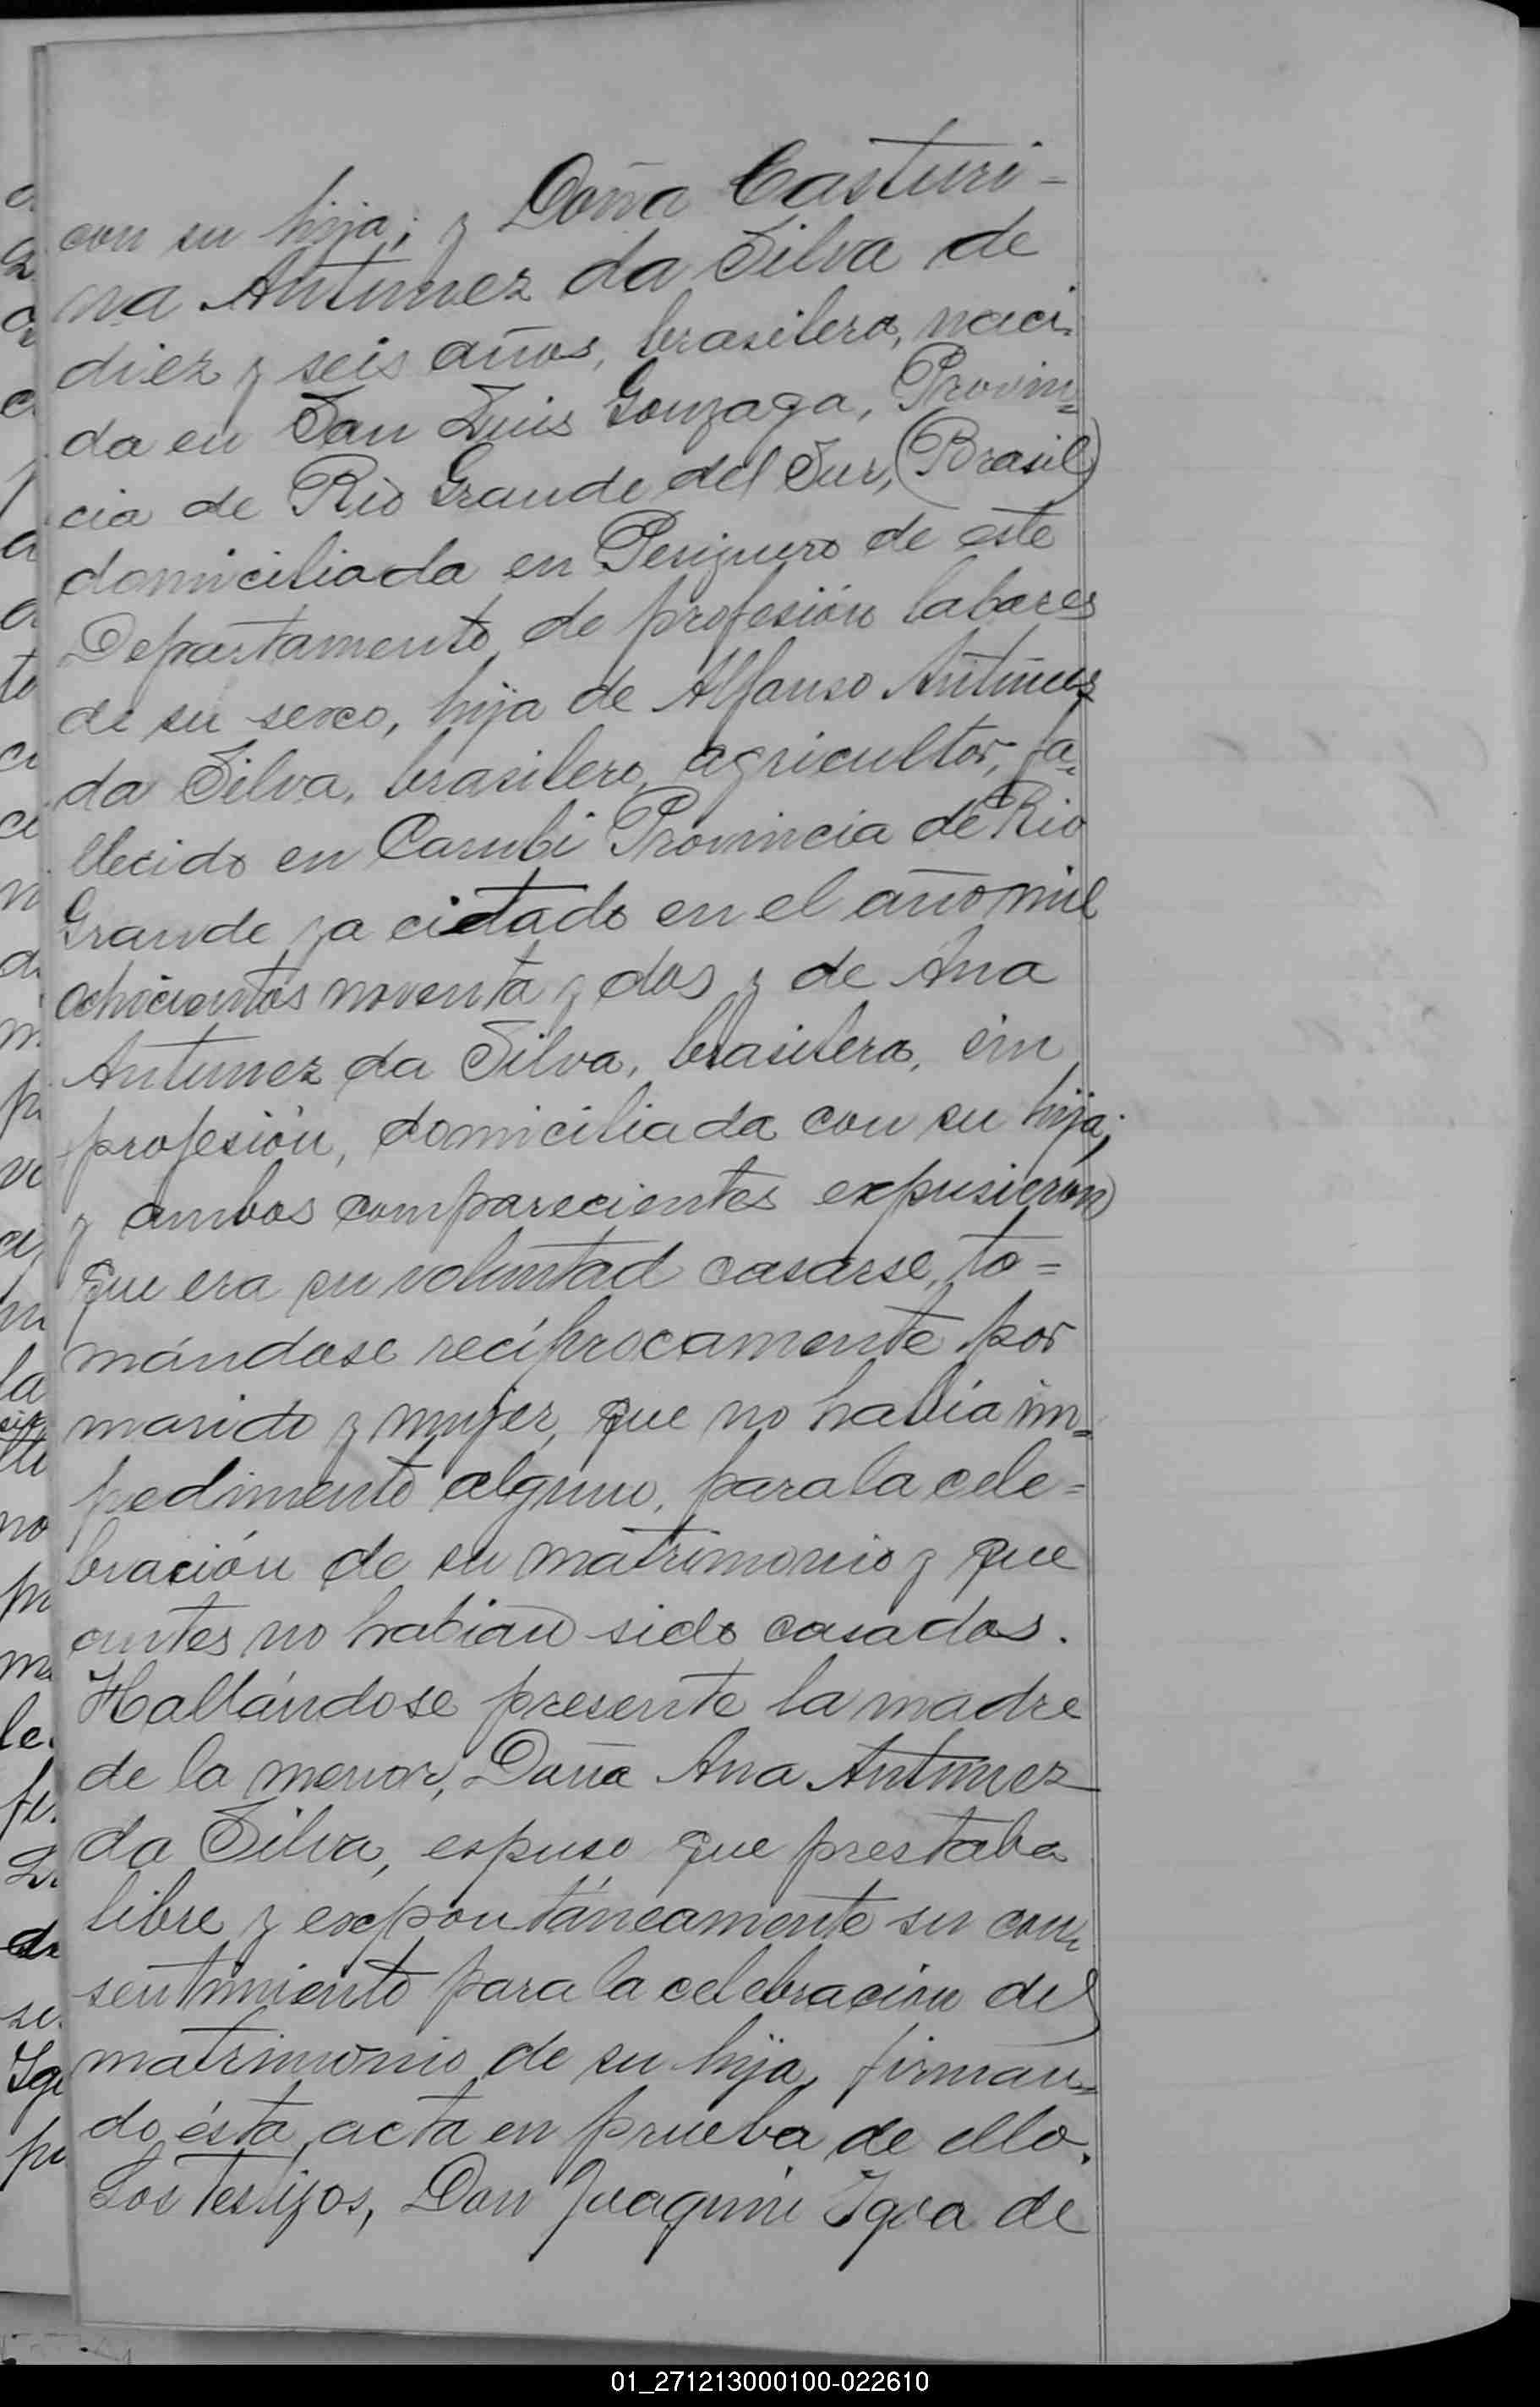 con su hija; y Doña Casturi-
na Antunez da Silva de
diez y seis años, brasilera, naci-
da en San Luis Gonzaga, Provin=
cia de Rio Grande del Sur, (Brasil)
domiciliada en Periguero de este
Departamento, de profesión labores
de su sexo, hija de Alfonso Antunez
da Silva, brasilero, agricultor, fa=
llecido en Provincia de Rio
Grande ya citado en el año mil
ochicientos noventa y dos y de Ana
Antunez da Silva, brasilera, sin
profesión, domiciliada con su hija;
y ambos comparecientes expusieron
que era su voluntad casarse, to=
mándose recíprocamente por
marido y mujer, que no había im=
pedimento alguno, para la cele=
bración de su matrimonio y que
antes no habian sido casados.
Hallándose presente la madre
de la menor, Doña Ana Antunez
da Silva, espuso que prestaba
libre y expontáneamente su con=
sentimiento para la celebracion del
matrimonio de su hija, firman=
do ésta acta en prueba de ello.
Los testigos, Don Joaquin Igoa de
01_271213000100-022610